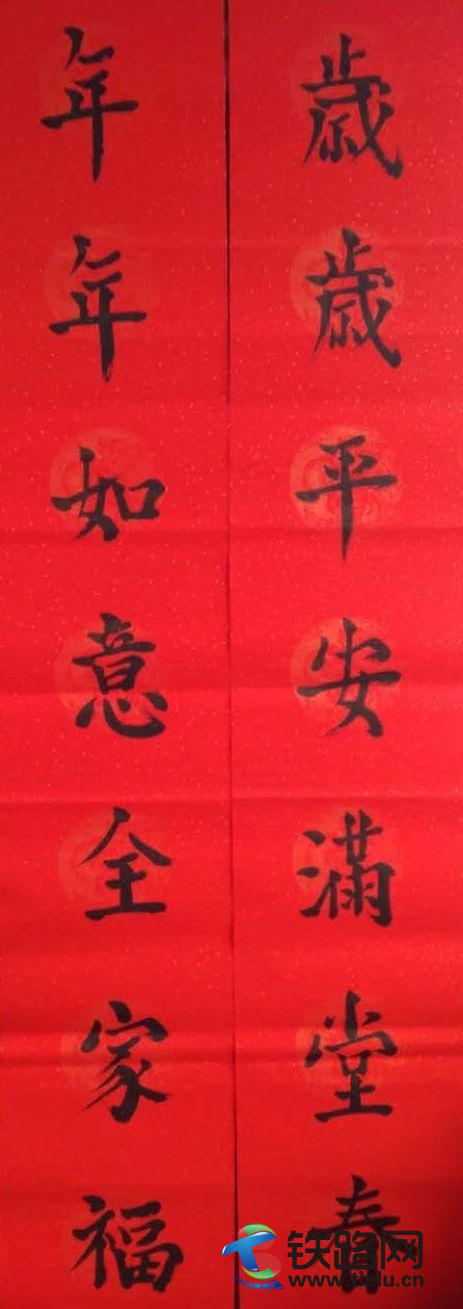 歲歲平安滿堂春
年年如意全家福
铁路网
www.tielu.cn